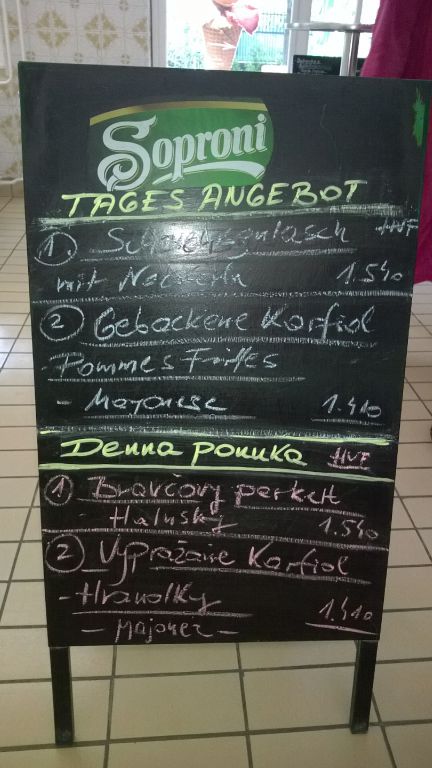 Soproni
TAGES ANGEBOT
1. Schweinsgulasch HUF
mit Nockerln 1.540
2 Gebackene Karfiol
- Pommes Frittes
- Mayonese 1.410
Denna ponuka HUF
1 Bravčový perkelt
- Halušky 1.540
2 Vyprážane Karfiol
- Hranolky
- Majonéz - 1.410